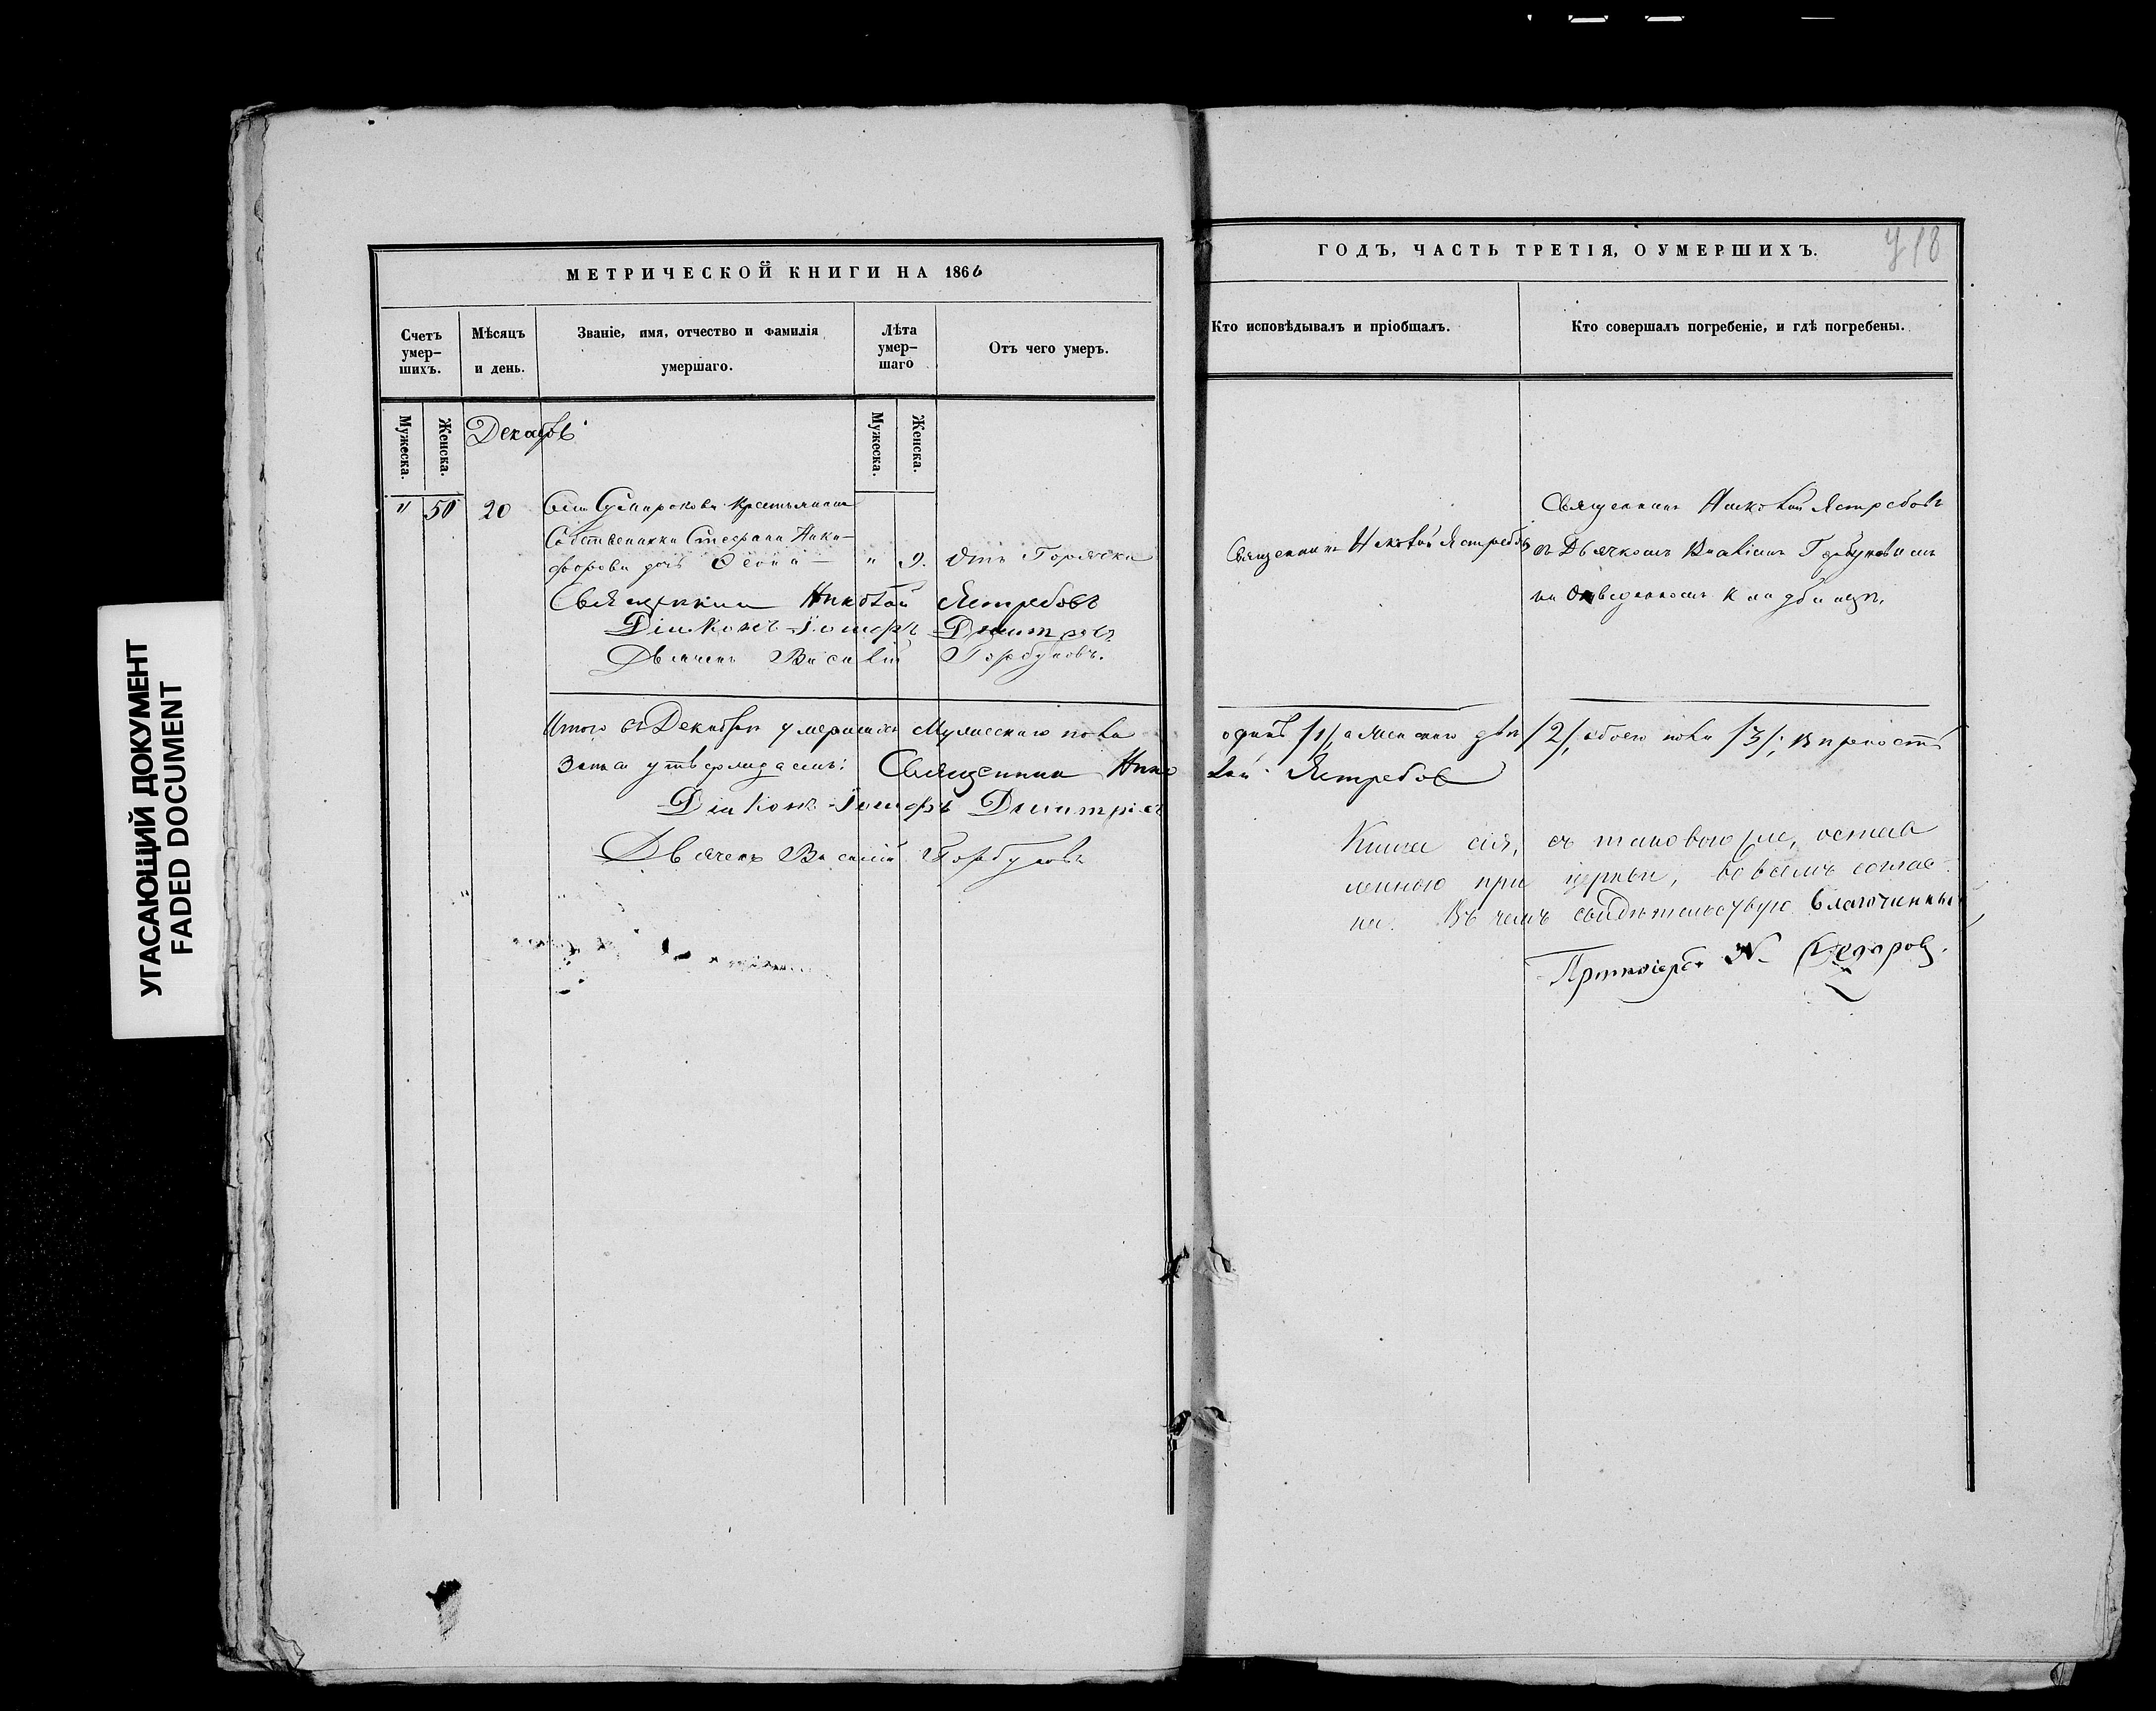 УГАСАЮЩИЙ ДОКУМЕНТ
FADED DOCUMENT
МЕТРИЧЕСКОЙ КНИГИ НА 1866
Счетъ умер-
шихъ.
Мѣсяцъ
и день.
Званіе, имя, отчество и фамилія
умершаго.
Лѣта
умер-
шаго
Отъ чего умеръ.
Мужеска.
Женска.
Декабрь
Мужеска.
Женска.
" 50 20 Села крестьянина
Собственника Стефана Ники-
форова дочь " 9. Отъ Горячки
Священникъ Николай Ястребовъ
Діаконъ Іосифъ Дмитріевъ
Дьячекъ Василій Горбуновъ.
Итого въ Декабрѣ умершихъ Мужескаго пола
утверждаемъ: Священникъ Нико
Діаконъ Іосифъ Дмитріевъ
Дьячекъ Василій Горбуновъ
ГОДЪ, ЧАСТЬ ТРЕТІЯ, О УМЕРШИХЪ.
Кто исповѣдывалъ и пріобщалъ.
Кто совершалъ погребеніе, и гдѣ погребены.
Священникъ Николай Ястребовъ
Священникъ Николай Ястребовъ
съ Дьячкомъ Василіемъ Горбуновымъ
на отведенномъ кладбищѣ.
одинъ /1/, а женскаго двѣ /2/, обоего пола /3/; В
лай Ястребовъ
Книга сія, съ таковою же, остав
ленною при церкви, во всемъ соглас
на. Въ чемъ свидѣтельствую Благочинный
Протоіерей Н. Федоровъ.